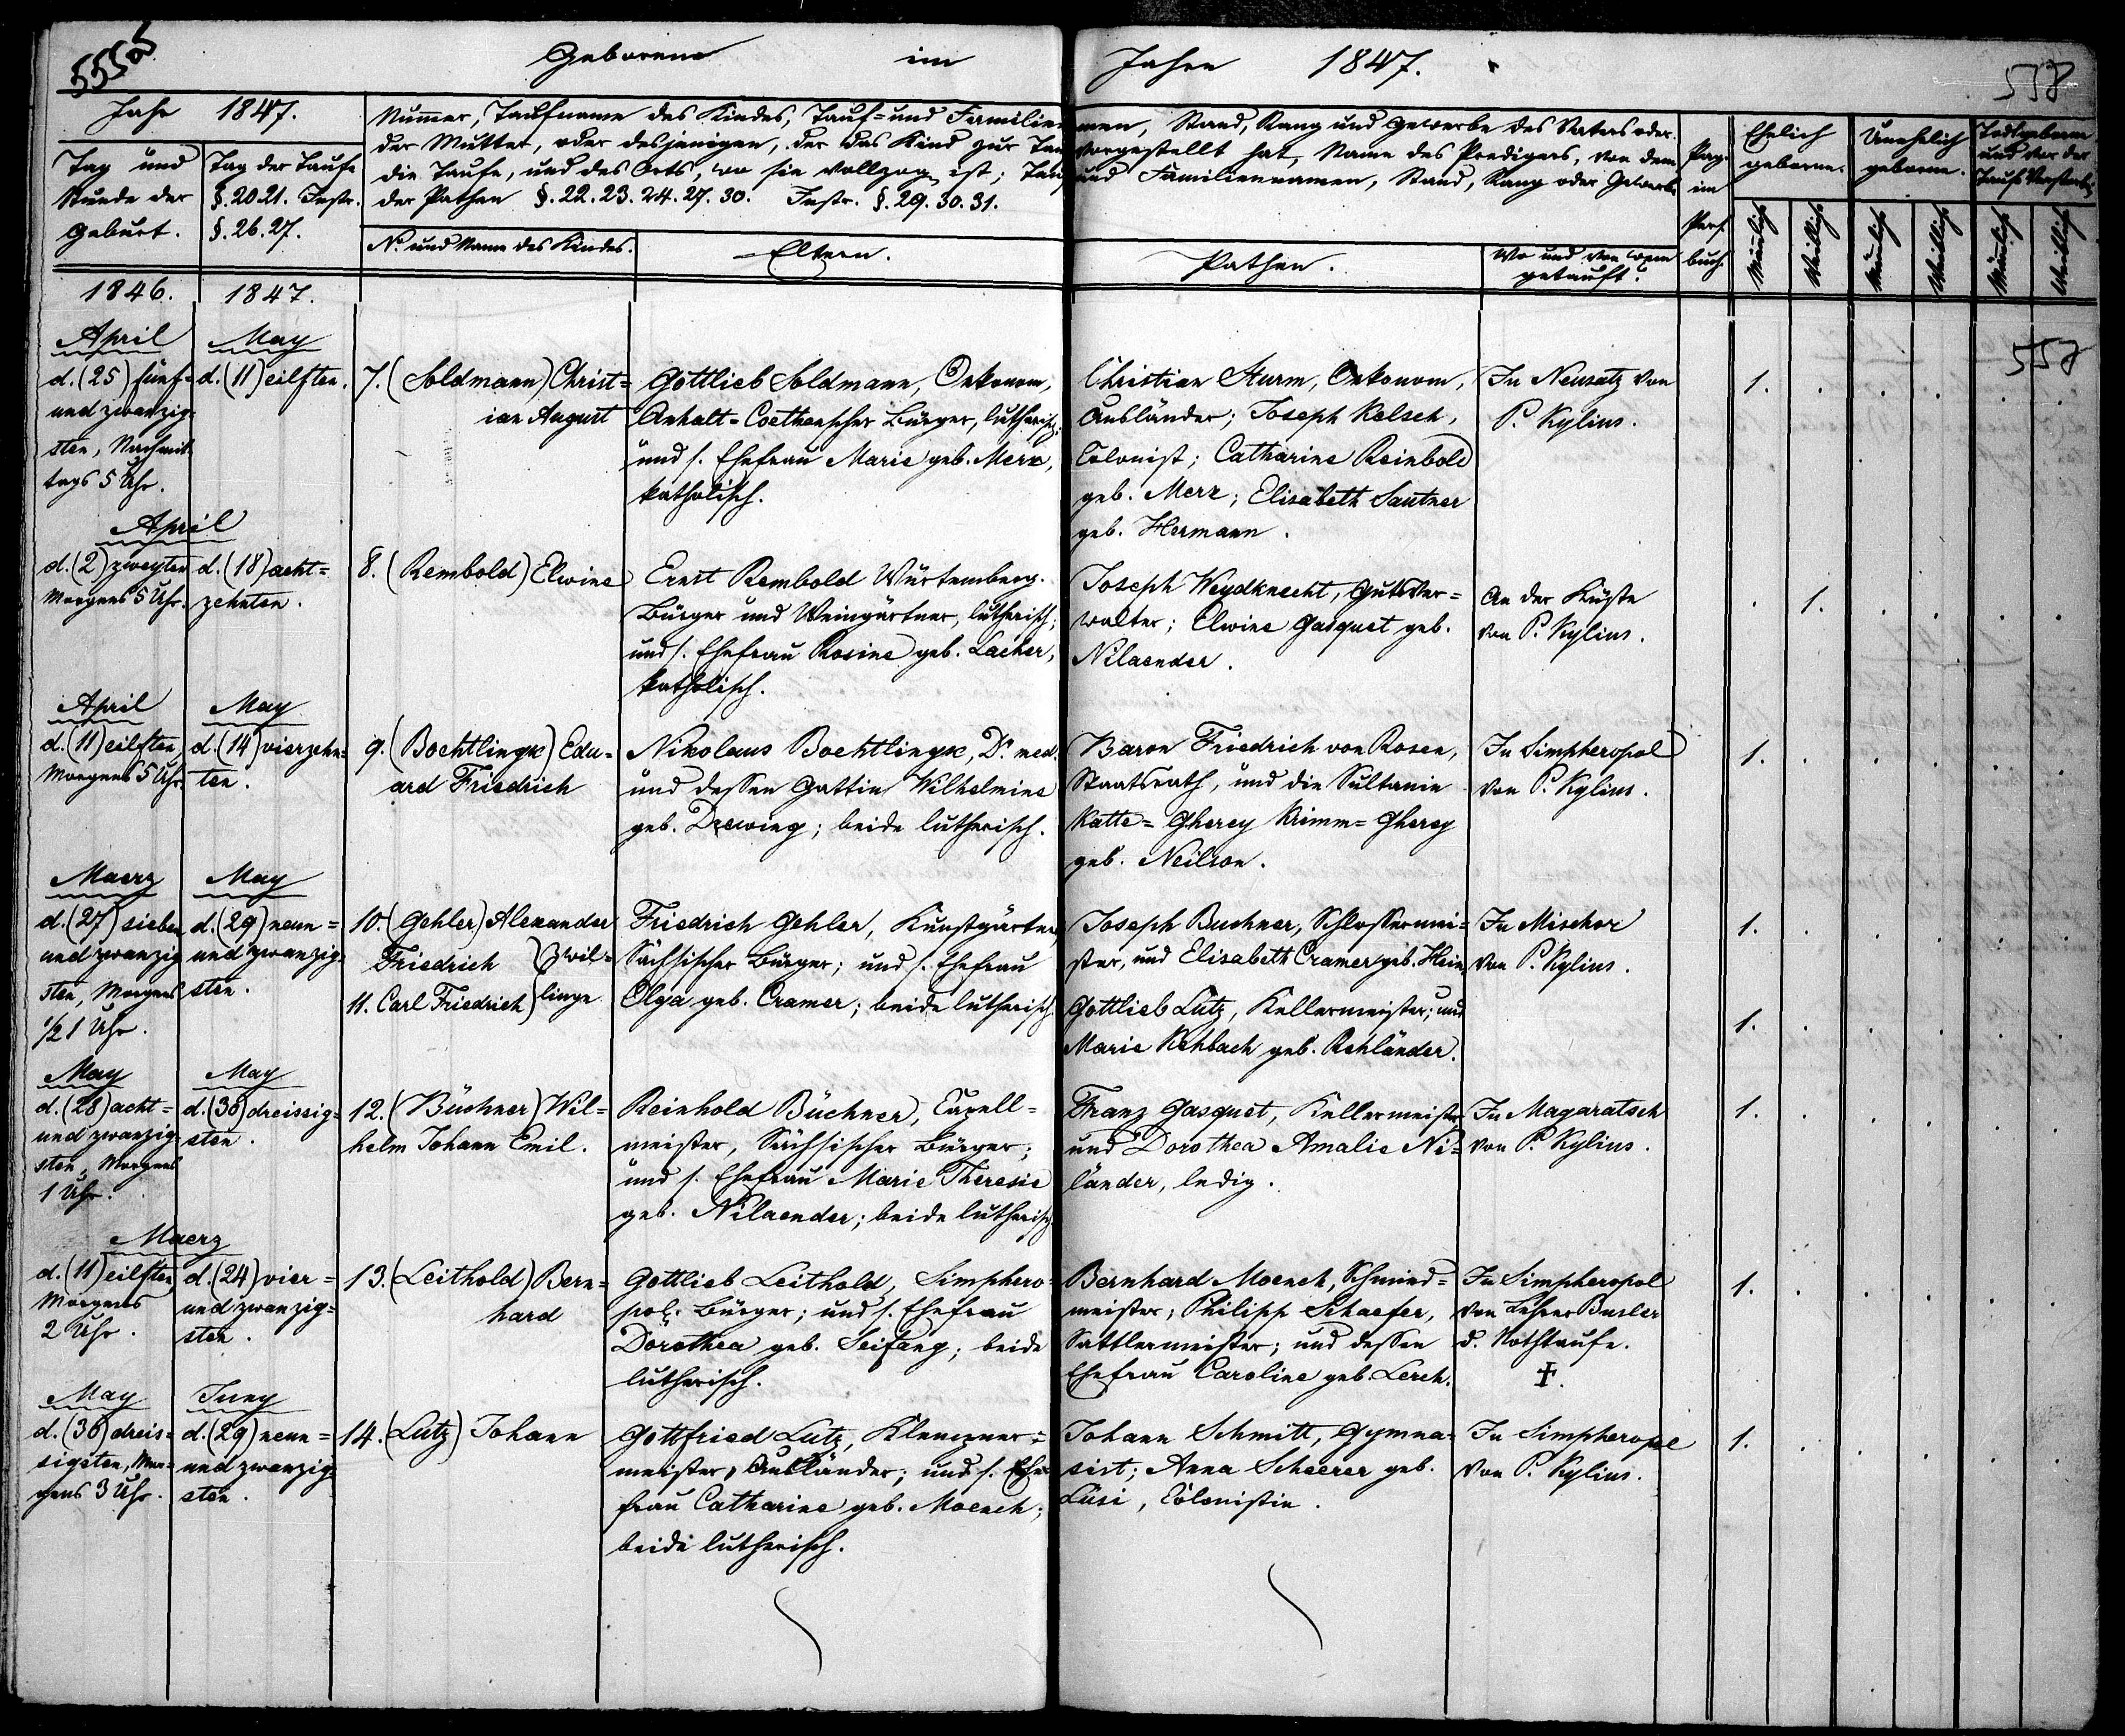 Geborene im Jahre 1847.
558
Jahr 1847.
Tag und Stunde der Geburt.
Tag der Taufe §. 20. 21. Instr. §. 26. 27.
Nummer, Taufname des Kindes, Tauf- und Familien
men, Stand, Rang und Gewerbe des Vaters oder
der Mutter, oder desjenigen, der das Kind zur Tau
vorgestellt hat, Name des Predigers, von dem
die Taufe, und des Orts, wo sie vollzogen ist; Tauf
und Familiennamen, Stand, Rang oder Gewerbe
der Pathen §. 22. 23. 24. 27. 30. Instr. §. 29. 30. 31.
No und Name des Kindes.
Eltern.
Pathen.
Wo und von wem getauft?
Pag. im Pers. buch.
Ehelich geborne.
Unehelich geborne.
Todtgeborne und vor der Taufe Verstorb.
Männlich
Weiblich
Männlich
Weiblich
Männlich
Weiblich
1846.
1847.
558
April
d. (25) fünf=
und zwanzig
sten, Nachmit
tags 5 Uhr.
May
d. (11) eilften.
7. (Soldmann) Christ=
ian August
Gottlieb Soldmann, Oekonom,
Anhalt=Coethenscher Bürger, lutherisch;
und s. Ehefrau Marie geb. Merx,
katholisch.
Christian Sturm, Oekonom,
Ausländer; Joseph Kelsch,
Colonist; Catharine Reinbold
geb. Merz; Elisabeth Sautner
geb. Hermann.
In Neusatz von
P. Kylius.
1.
April
d. (2) zweyten
Morgens 5 Uhr.
d. (18) acht=
zehnten.
8. (Rembold) Elwine
Ernst Rembold Würtemberg.
Bürger und Weingärtner, lutherisch;
und s. Ehefrau Rosine geb. Lacher,
katholisch.
Joseph Weydknecht, Gutsver=
walter; Elwine Gasquet geb.
Nilaender.
An der Küste
von P. Kylius.
1.
April
d. (11) eilften
Morgens 5 Uhr.
May
d. (14) vierzehn=
ten.
9. (Boehtlingk) Edu=
ard Friedrich
Nikolaus Boehtlingk, Dr. med.
und dessen Gattin Wilhelmine
geb. Drewing; beide lutherisch.
Baron Friedrich von Rosen,
Staatsrath, und die Sultanin
Katte=Gherey Krimm=Gherey
geb. Neilson.
In Simpheropol
von P. Kylius.
1.
Maerz
d. (27) sieben
und zwanzig
sten, Morgens
½ 1 Uhr.
May
d. (29) neun=
und zwanzig
sten.
10. (Gehler) Alexander
Friedrich
11. Carl Friedrich
Zwil=
linge
Friedrich Gehler, Kunstgärtner,
Sächsischer Bürger; und s. Ehefrau
Olga geb. Cramer; beide lutherisch.
Joseph Buchner, Schlossermei=
ster, und Elisabeth Cramer geb. Hein
Gottlieb Lutz, Kellermeister; und
Marie Rehbach geb. Rehländer.
In Mischor
von P. Kylius.
1.
1.
May
d. (28) acht=
und zwanzig
sten, Morgens
1 Uhr.
May
d. (30) dreissig=
sten.
12. (Büchner) Wil=
helm Johann Emil.
Reinhold Büchner, Capell=
meister, Sächsischer Bürger;
und s. Ehefrau Marie Theresie
geb. Nilaender; beide lutherisch
Franz Gasquet, Kellermeister,
und Dorothea Amalie Ni=
länder, ledig.
In Magaratsch
von P. Kylius.
1.
Maerz
d. (11) eilften
Morgens
2 Uhr.
d. (24) vier=
und zwanzig=
sten.
13. (Leithold) Bern=
hard
Gottlieb Leithold, Simphero=
pol. Bürger; und s. Ehefrau
Dorothea geb. Seifang; beide
lutherisch.
Bernhard Moench, Schmied=
meister; Philipp Schaefer,
Sattlermeister; und dessen
Ehefrau Caroline geb. Lerch.
In Simpheropol
von Lehrer Busler
d. Nothtaufe.
1.
May
d. (30) dreis=
sigsten, Mor=
gens 3 Uhr.
Juny
d. (29) neun=
und zwanzig
sten.
14. (Lutz) Johann
Gottfried Lutz, Klempner=
meister, Ausländer; und s. Ehe
frau Catharine geb. Moench;
beide lutherisch.
Johann Schmitt, Gymna=
sist; Anna Scheerer geb.
Lüsi, Colonistin.
In Simpheropol
von P. Kylius.
1.